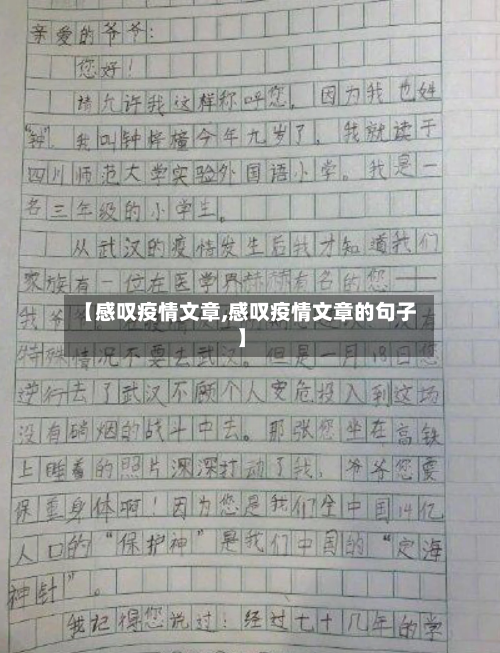 亲爱的爷爷：
您好！
请允许我这样称呼您，因为我也姓
“钟”，我叫钟梓橦今年九岁了，我就读于
四川师范大学实验外国语小学。我是一
名三年级的小学生。
从武汉的疫情发生后我才知道我们
家族有一位在医学界赫赫有名的您——
【感叹疫情文章,感叹疫情文章的句子
】
特殊情况不要去武汉。但是一月18日您
逆行去了武汉不顾个人安危投入到这场
没有硝烟的战斗中去。那张您坐在高铁
上睡着的照片深深打动了我，爷爷您要
保重身体啊！因为您是我们全中国14亿
人口的“保护神”是我们中国的“定海
神针”。
我记得您说过！经过七十几年的学